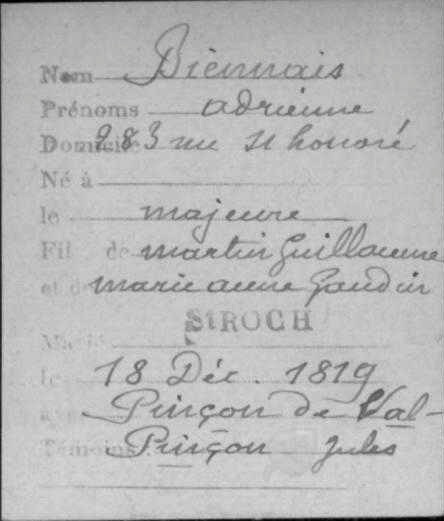 Nom Biennais
Prénoms adrienne
Domicile 283 rue St honoré
Né à
le majeure
Fil de martin Guillaume
et de marie anne Gaudin
St ROCH
Marié
le 18 Déc. 1819
avec Pinçon de Val-
Témoins Pinçon Jules